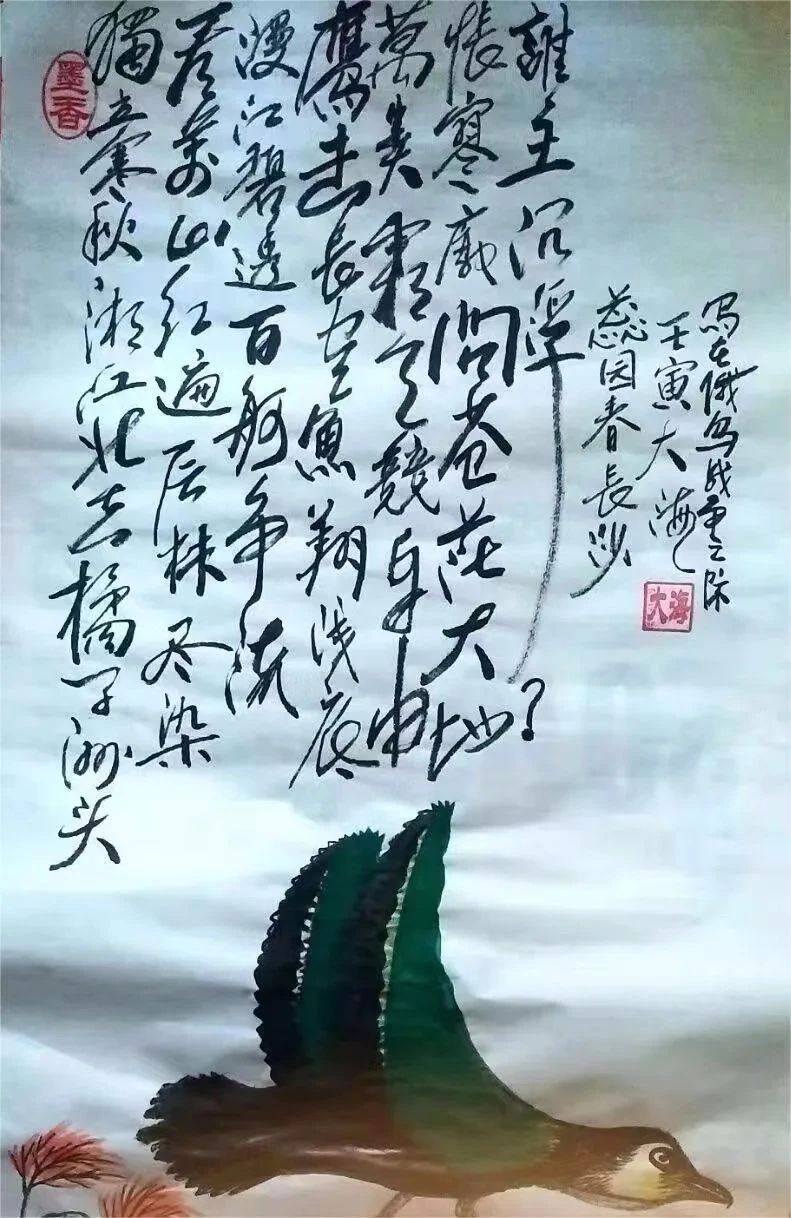 墨香
獨立寒秋湘江北去橘子洲头
看萬山红遍层林尽染
漫江碧透百舸争流
鹰击長空魚翔浅底
萬类霜天競自由
怅寥廓問苍茫大地?
誰主沉浮
蕊园春長沙
壬寅大海
写在俄乌战事之际
大海